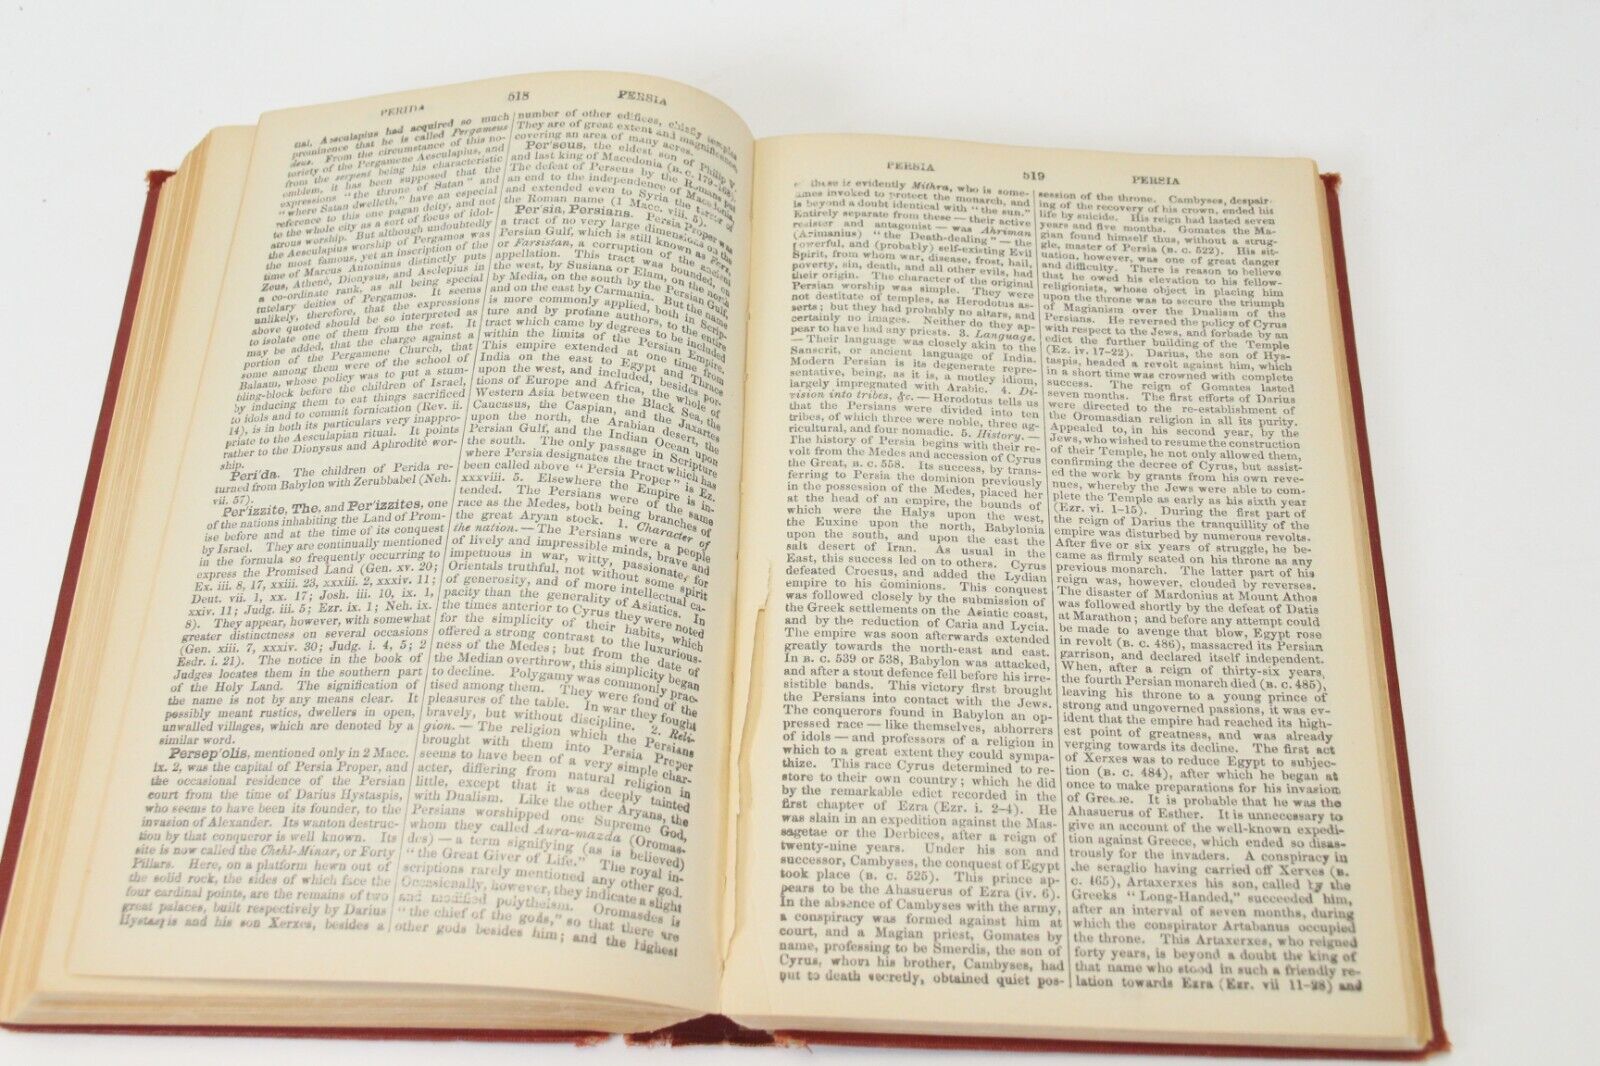 PERIDA 518 PERSIA
nal, Aesculapius had acquired so much
prominence that he is called Pergameus
deus. From the circumstance of this no-
toriety of the Pergamene Aesculapius, and
from the serpent being his characteristic
emblem, it has been supposed that the
expressions "the throne of Satan" and
"where Satan dwelleth," have an especial
reference to this one pagan deity, and not
to the whole city as a sort of focus of idol-
atrous worship. But although undoubtedly
the Aesculapius worship of Pergamos was
the most famous, yet an inscription of the
time of Marcus Antoninus distinctly puts
Zeus, Athenè, Dionysus, and Asclepius in
a co-ordinate rank, as all being special
tutelary deities of Pergamos. It seems
unlikely, therefore, that the expressions
above quoted should be so interpreted as
to isolate one of them from the rest. It
may be added, that the charge against a
portion of the Pergamene Church, that
some among them were of the school of
Balaam, whose policy was to put a stum-
bling-block before the children of Israel,
by inducing them to eat things sacrificed
to idols and to commit fornication (Rev. ii.
14), is in both its particulars very inappro-
priate to the Aesculapian ritual. It points
rather to the Dionysus and Aphrodite wor-
ship.
Peri'da. The children of Perida re-
turned from Babylon with Zerubbabel (Neh.
vii. 57).
Per'izzite, The, and Per'izzites, one
of the nations inhabiting the Land of Prom-
ise before and at the time of its conquest
by Israel. They are continually mentioned
in the formula so frequently occurring to
express the Promised Land (Gen. xv. 20;
Ex. iii. 8, 17, xxiii. 23, xxxiii. 2, xxxiv. 11;
Deut. vii. 1, xx. 17; Josh. iii. 10, ix. 1,
xxiv. 11; Judg. iii. 5; Ezr. ix. 1; Neh. ix.
8). They appear, however, with somewhat
greater distinctness on several occasions
(Gen. xiii. 7, xxxiv. 30; Judg. i. 4, 5; 2
Esdr. i. 21). The notice in the book of
Judges locates them in the southern part
of the Holy Land. The signification of
the name is not by any means clear. It
possibly meant rustics, dwellers in open,
unwalled villages, which are denoted by a
similar word.
Persep'olis, mentioned only in 2 Macc.
ix. 2, was the capital of Persia Proper, and
the occasional residence of the Persian
court from the time of Darius Hystaspis,
who seems to have been its founder, to the
invasion of Alexander. Its wanton destruc-
tion by that conqueror is well known. Its
site is now called the Chehl-Minar, or Forty
Pillars. Here, on a platform hewn out of
the solid rock, the sides of which face the
four cardinal points, are the remains of two
great palaces, built respectively by Darius
Hystaspis and his son Xerxes, besides a
number of other edifices, chiefly temples
They are of great extent and magnificence,
covering an area of many acres.
Per'seus, the eldest son of Philip V.
and last king of Macedonia (B. C. 179-168).
The defeat of Perseus by the Romans put
an end to the independence of Macedonia,
and extended even to Syria the terror of
the Roman name (1 Macc. viii. 5).
Per'sia, Persians. Persia Proper was
a tract of no very large dimensions on the
Persian Gulf, which is still known as Fars,
or Farsistan, a corruption of the ancient
appellation. This tract was bounded, on
the west, by Susiana or Elam, on the north
by Media, on the south by the Persian Gulf,
and on the east by Carmania. But the name
is more commonly applied, both in Scrip-
ture and by profane authors, to the entire
tract which came by degrees to be included
within the limits of the Persian Empire.
This empire extended at one time from
India on the east to Egypt and Thrace
upon the west, and included, besides por-
tions of Europe and Africa, the whole of
Western Asia between the Black Sea, the
Caucasus, the Caspian, and the Jaxartes
upon the north, the Arabian desert, the
Persian Gulf, and the Indian Ocean upon
the south. The only passage in Scripture
where Persia designates the tract which has
been called above "Persia Proper" is Ez.
xxxviii. 5. Elsewhere the Empire is in-
tended. The Persians were of the same
race as the Medes, both being branches of
the great Aryan stock. 1. Character of
the nation.—The Persians were a people
of lively and impressible minds, brave and
impetuous in war, witty, passionate, for
Orientals truthful, not without some spirit
of generosity, and of more intellectual ca-
pacity than the generality of Asiatics. In
the times anterior to Cyrus they were noted
for the simplicity of their habits, which
offered a strong contrast to the luxurious-
ness of the Medes; but from the date of
the Median overthrow, this simplicity began
to decline. Polygamy was commonly prac-
tised among them. They were fond of the
pleasures of the table. In war they fought
bravely, but without discipline. 2. Reli-
gion.—The religion which the Persians
brought with them into Persia Proper
seems to have been of a very simple char-
acter, differing from natural religion in
little, except that it was deeply tainted
with Dualism. Like the other Aryans, the
Persians worshipped one Supreme God,
whom they called Aura-mazda (Oromas-
des)—a term signifying (as is believed)
"the Great Giver of Life." The royal in-
scriptions rarely mentioned any other god.
Occasionally, however, they indicate a slight
and modified polytheism. Oromasdes is
"the chief of the gods," so that there are
other gods besides him; and the highest
PERSIA 519 PERSIA
these is evidently Mithra, who is some-
times invoked to protect the monarch, and
is beyond a doubt identical with "the sun."
Entirely separate from these—their active
resister and antagonist—was Ahriman
(Arimanius) "the Death-dealing"—the
powerful, and (probably) self-existing Evil
Spirit, from whom war, disease, frost, hail,
poverty, sin, death, and all other evils, had
their origin. The character of the original
Persian worship was simple. They were
not destitute of temples, as Herodotus as-
serts; but they had probably no altars, and
certainly no images. Neither do they ap-
pear to have had any priests. 3. Language.
—Their language was closely akin to the
Sanscrit, or ancient language of India.
Modern Persian is its degenerate repre-
sentative, being, as it is, a motley idiom,
largely impregnated with Arabic. 4. Di-
vision into tribes, &c.—Herodotus tells us
that the Persians were divided into ten
tribes, of which three were noble, three ag-
ricultural, and four nomadic. 5. History.—
The history of Persia begins with their re-
volt from the Medes and accession of Cyrus
the Great, B. C. 558. Its success, by trans-
ferring to Persia the dominion previously
in the possession of the Medes, placed her
at the head of an empire, the bounds of
which were the Halys upon the west,
the Euxine upon the north, Babylonia
upon the south, and upon the east the
salt desert of Iran. As usual in the
East, this success led on to others. Cyrus
defeated Croesus, and added the Lydian
empire to his dominions. This conquest
was followed closely by the submission of
the Greek settlements on the Asiatic coast,
and by the reduction of Caria and Lycia.
The empire was soon afterwards extended
greatly towards the north-east and east.
In B. C. 539 or 538, Babylon was attacked,
and after a stout defence fell before his irre-
sistible bands. This victory first brought
the Persians into contact with the Jews.
The conquerors found in Babylon an op-
pressed race—like themselves, abhorrers
of idols—and professors of a religion in
which to a great extent they could sympa-
thize. This race Cyrus determined to re-
store to their own country; which he did
by the remarkable edict recorded in the
first chapter of Ezra (Ezr. i. 2-4). He
was slain in an expedition against the Mas-
sagetae or the Derbices, after a reign of
twenty-nine years. Under his son and
successor, Cambyses, the conquest of Egypt
took place (B. C. 525). This prince ap-
pears to be the Ahasuerus of Ezra (iv. 6).
In the absence of Cambyses with the army,
a conspiracy was formed against him at
court, and a Magian priest, Gomates by
name, professing to be Smerdis, the son of
Cyrus, whom his brother, Cambyses, had
put to death secretly, obtained quiet pos-
session of the throne. Cambyses, despair-
ing of the recovery of his crown, ended his
life by suicide. His reign had lasted seven
years and five months. Gomates the Ma-
gian found himself thus, without a strug-
gle, master of Persia (B. C. 522). His sit-
uation, however, was one of great danger
and difficulty. There is reason to believe
that he owed his elevation to his fellow-
religionists, whose object in placing him
upon the throne was to secure the triumph
of Magianism over the Dualism of the
Persians. He reversed the policy of Cyrus
with respect to the Jews, and forbade by an
edict the further building of the Temple
(Ez. iv. 17-22). Darius, the son of Hys-
taspis, headed a revolt against him, which
in a short time was crowned with complete
success. The reign of Gomates lasted
seven months. The first efforts of Darius
were directed to the re-establishment of
the Oromasdian religion in all its purity.
Appealed to, in his second year, by the
Jews, who wished to resume the construction
of their Temple, he not only allowed them,
confirming the decree of Cyrus, but assist-
ed the work by grants from his own reve-
nues, whereby the Jews were able to com-
plete the Temple as early as his sixth year
(Ezr. vi. 1-15). During the first part of
the reign of Darius the tranquillity of the
empire was disturbed by numerous revolts.
After five or six years of struggle, he be-
came as firmly seated on his throne as any
previous monarch. The latter part of his
reign was, however, clouded by reverses.
The disaster of Mardonius at Mount Athos
was followed shortly by the defeat of Datis
at Marathon; and before any attempt could
be made to avenge that blow, Egypt rose
in revolt (B. C. 486), massacred its Persian
garrison, and declared itself independent.
When, after a reign of thirty-six years,
the fourth Persian monarch died (B. C. 485),
leaving his throne to a young prince of
strong and ungoverned passions, it was ev-
ident that the empire had reached its high-
est point of greatness, and was already
verging towards its decline. The first act
of Xerxes was to reduce Egypt to subjec-
tion (B. C. 484), after which he began at
once to make preparations for his invasion
of Greece. It is probable that he was the
Ahasuerus of Esther. It is unnecessary to
give an account of the well-known expedi-
tion against Greece, which ended so disas-
trously for the invaders. A conspiracy in
the seraglio having carried off Xerxes (B.
C. 465), Artaxerxes his son, called by the
Greeks "Long-Handed," succeeded him,
after an interval of seven months, during
which the conspirator Artabanus occupied
the throne. This Artaxerxes, who reigned
forty years, is beyond a doubt the king of
that name who stood in such a friendly re-
lation towards Ezra (Ezr. vii 11-28) and